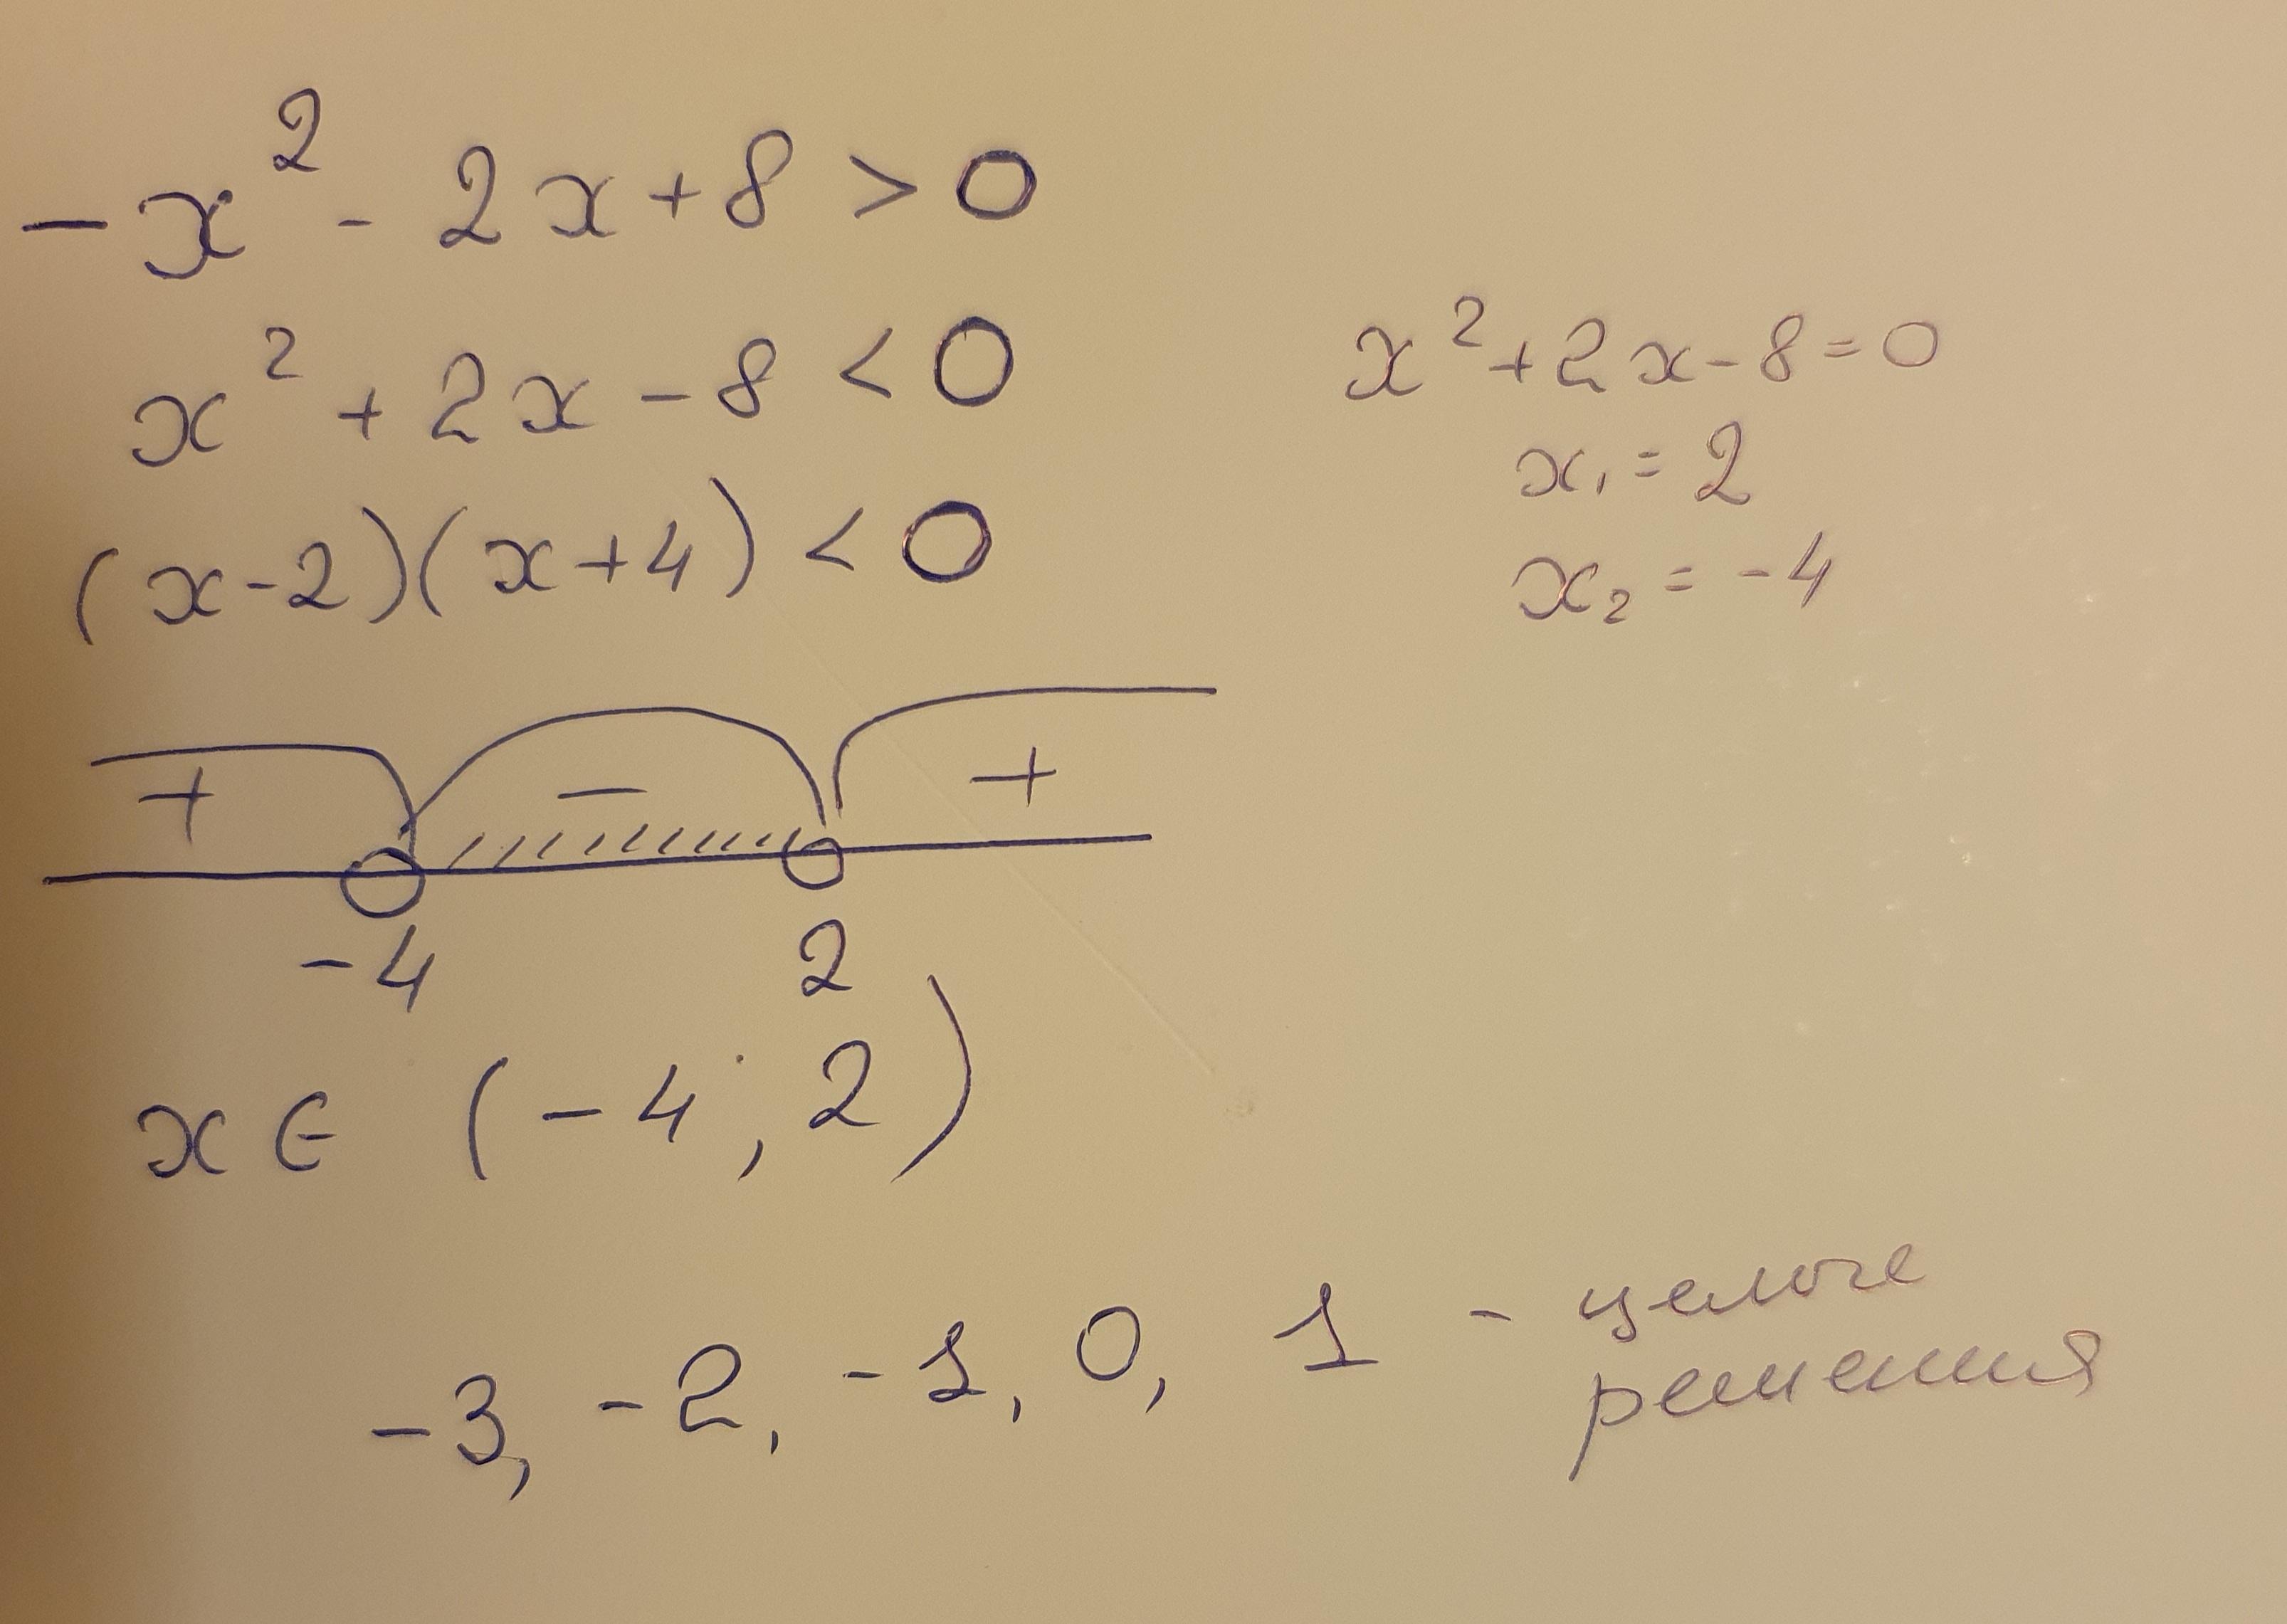 -x² - 2x + 8 > 0
x² + 2x - 8 < 0
(x-2)(x+4) < 0
x² + 2x - 8 = 0
x₁ = 2
x₂ = -4
+ - +
-4 2
x ∈ (-4; 2)
-3, -2, -1, 0, 1 - целые
решения